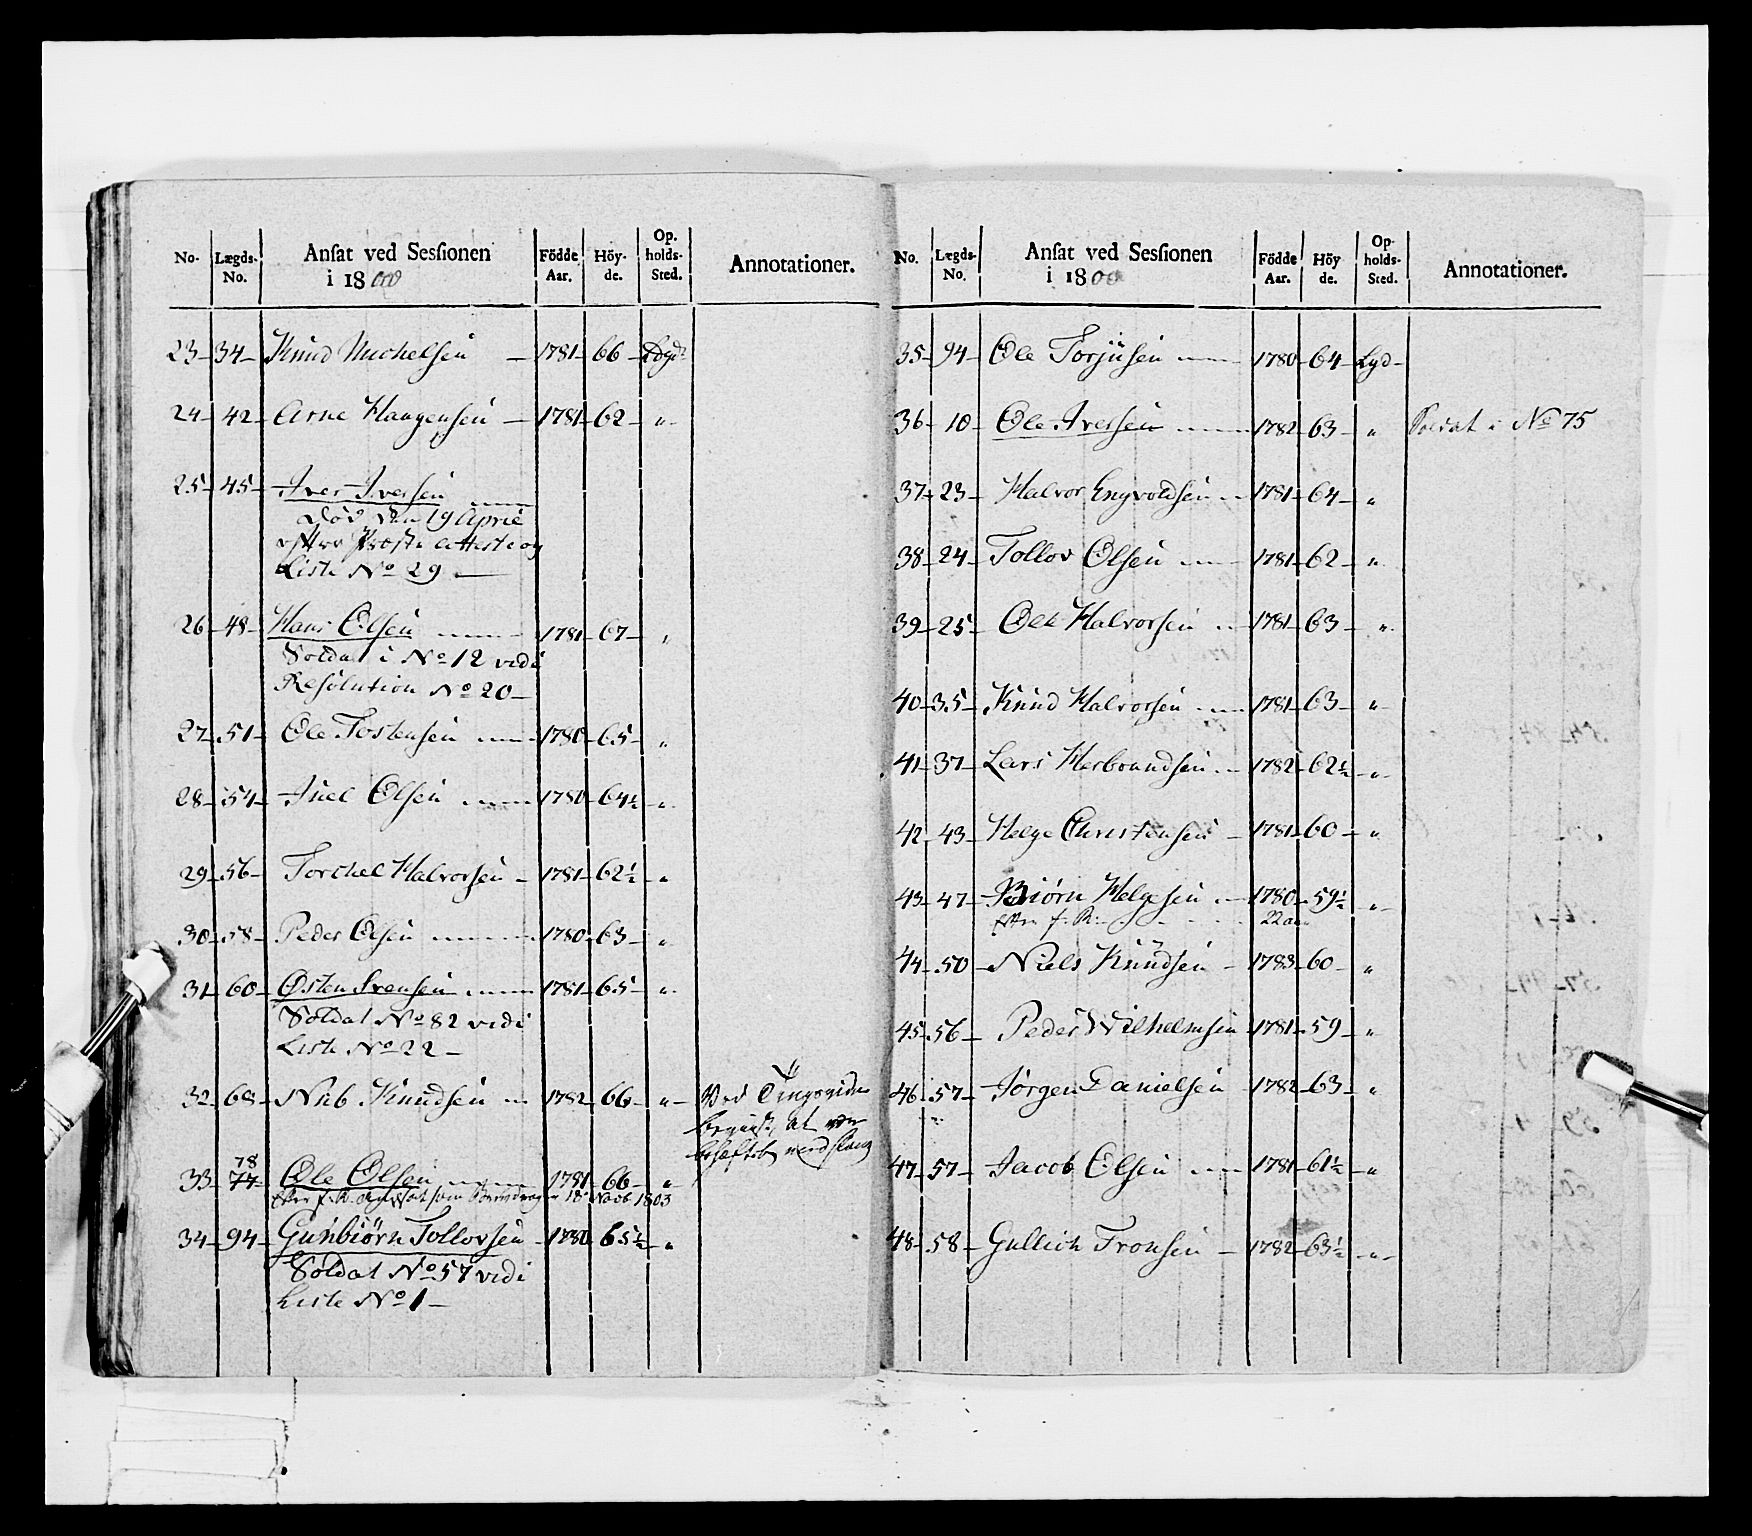 No. Lægds-No. Ansat ved Sessionen i 1800 Födde Aar. Höy-de. Op-holds-Sted. Annotationer.
23 34 Knud Michelsen 1781 66 Lægd
24 42 Arne Haagensen 1781 62 "
25 45 Iver Iversen
Död den 19 April
efter Præste Attest og
Liste No 29
26 48 Hans Olsen 1781 67 "
Soldat i No 12 vidi
Resolution No 20
27 51 Ole Tostensen 1780 65 "
28 54 Juel Olsen 1780 64½ "
29 56 Torchel Halvorsen 1781 62½ "
30 58 Peder Olsen 1780 63 "
31 60 Østen Svensen 1781 65 "
Soldat No 82 vidi
Liste No 22
32 68 Nub Knudsen 1782 66 " Ved
33 78 77 Ole Olsen 1781 66 "
Efter f. R. 18 Novb 1803
34 94 Gunbiørn Tollovsen 1780 65½ "
Soldat No 57 vidi
Liste No 1
No. Lægds-No. Ansat ved Sessionen i 1800 Födde Aar. Höy de. Op-holds-Sted. Annotationer.
35 94 Ole Torjusen 1780 64 Lægd
36 10 Ole Iversen 1782 63 " Soldat i No 75
37 23 Halvor Engvoldsen 1781 64 "
38 24 Tollov Olsen 1781 62 "
39 25 Ole Halvorsen 1781 63 "
40 35 Knud Halvorsen 1781 63 "
41 37 Lars Herbrandsen 1782 62½ "
42 43 Helge Christensen 1781 60 "
43 47 Biørn Helgesen 1780 59½ "
Efter f. R. 22 aar
44 50 Niels Knudsen 1783 60 "
45 56 Peder Wilhelmsen 1781 59 "
46 57 Jørgen Danielsen 1782 63 "
47 57 Jacob Olsen 1781 61½ "
48 58 Gullich Tronsen 1782 63½ "